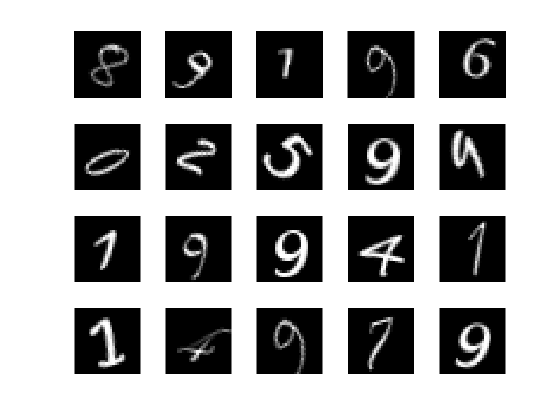 8 9 1 9 6
0 2 5 9 4
1 9 9 4 1
1 9 7 9